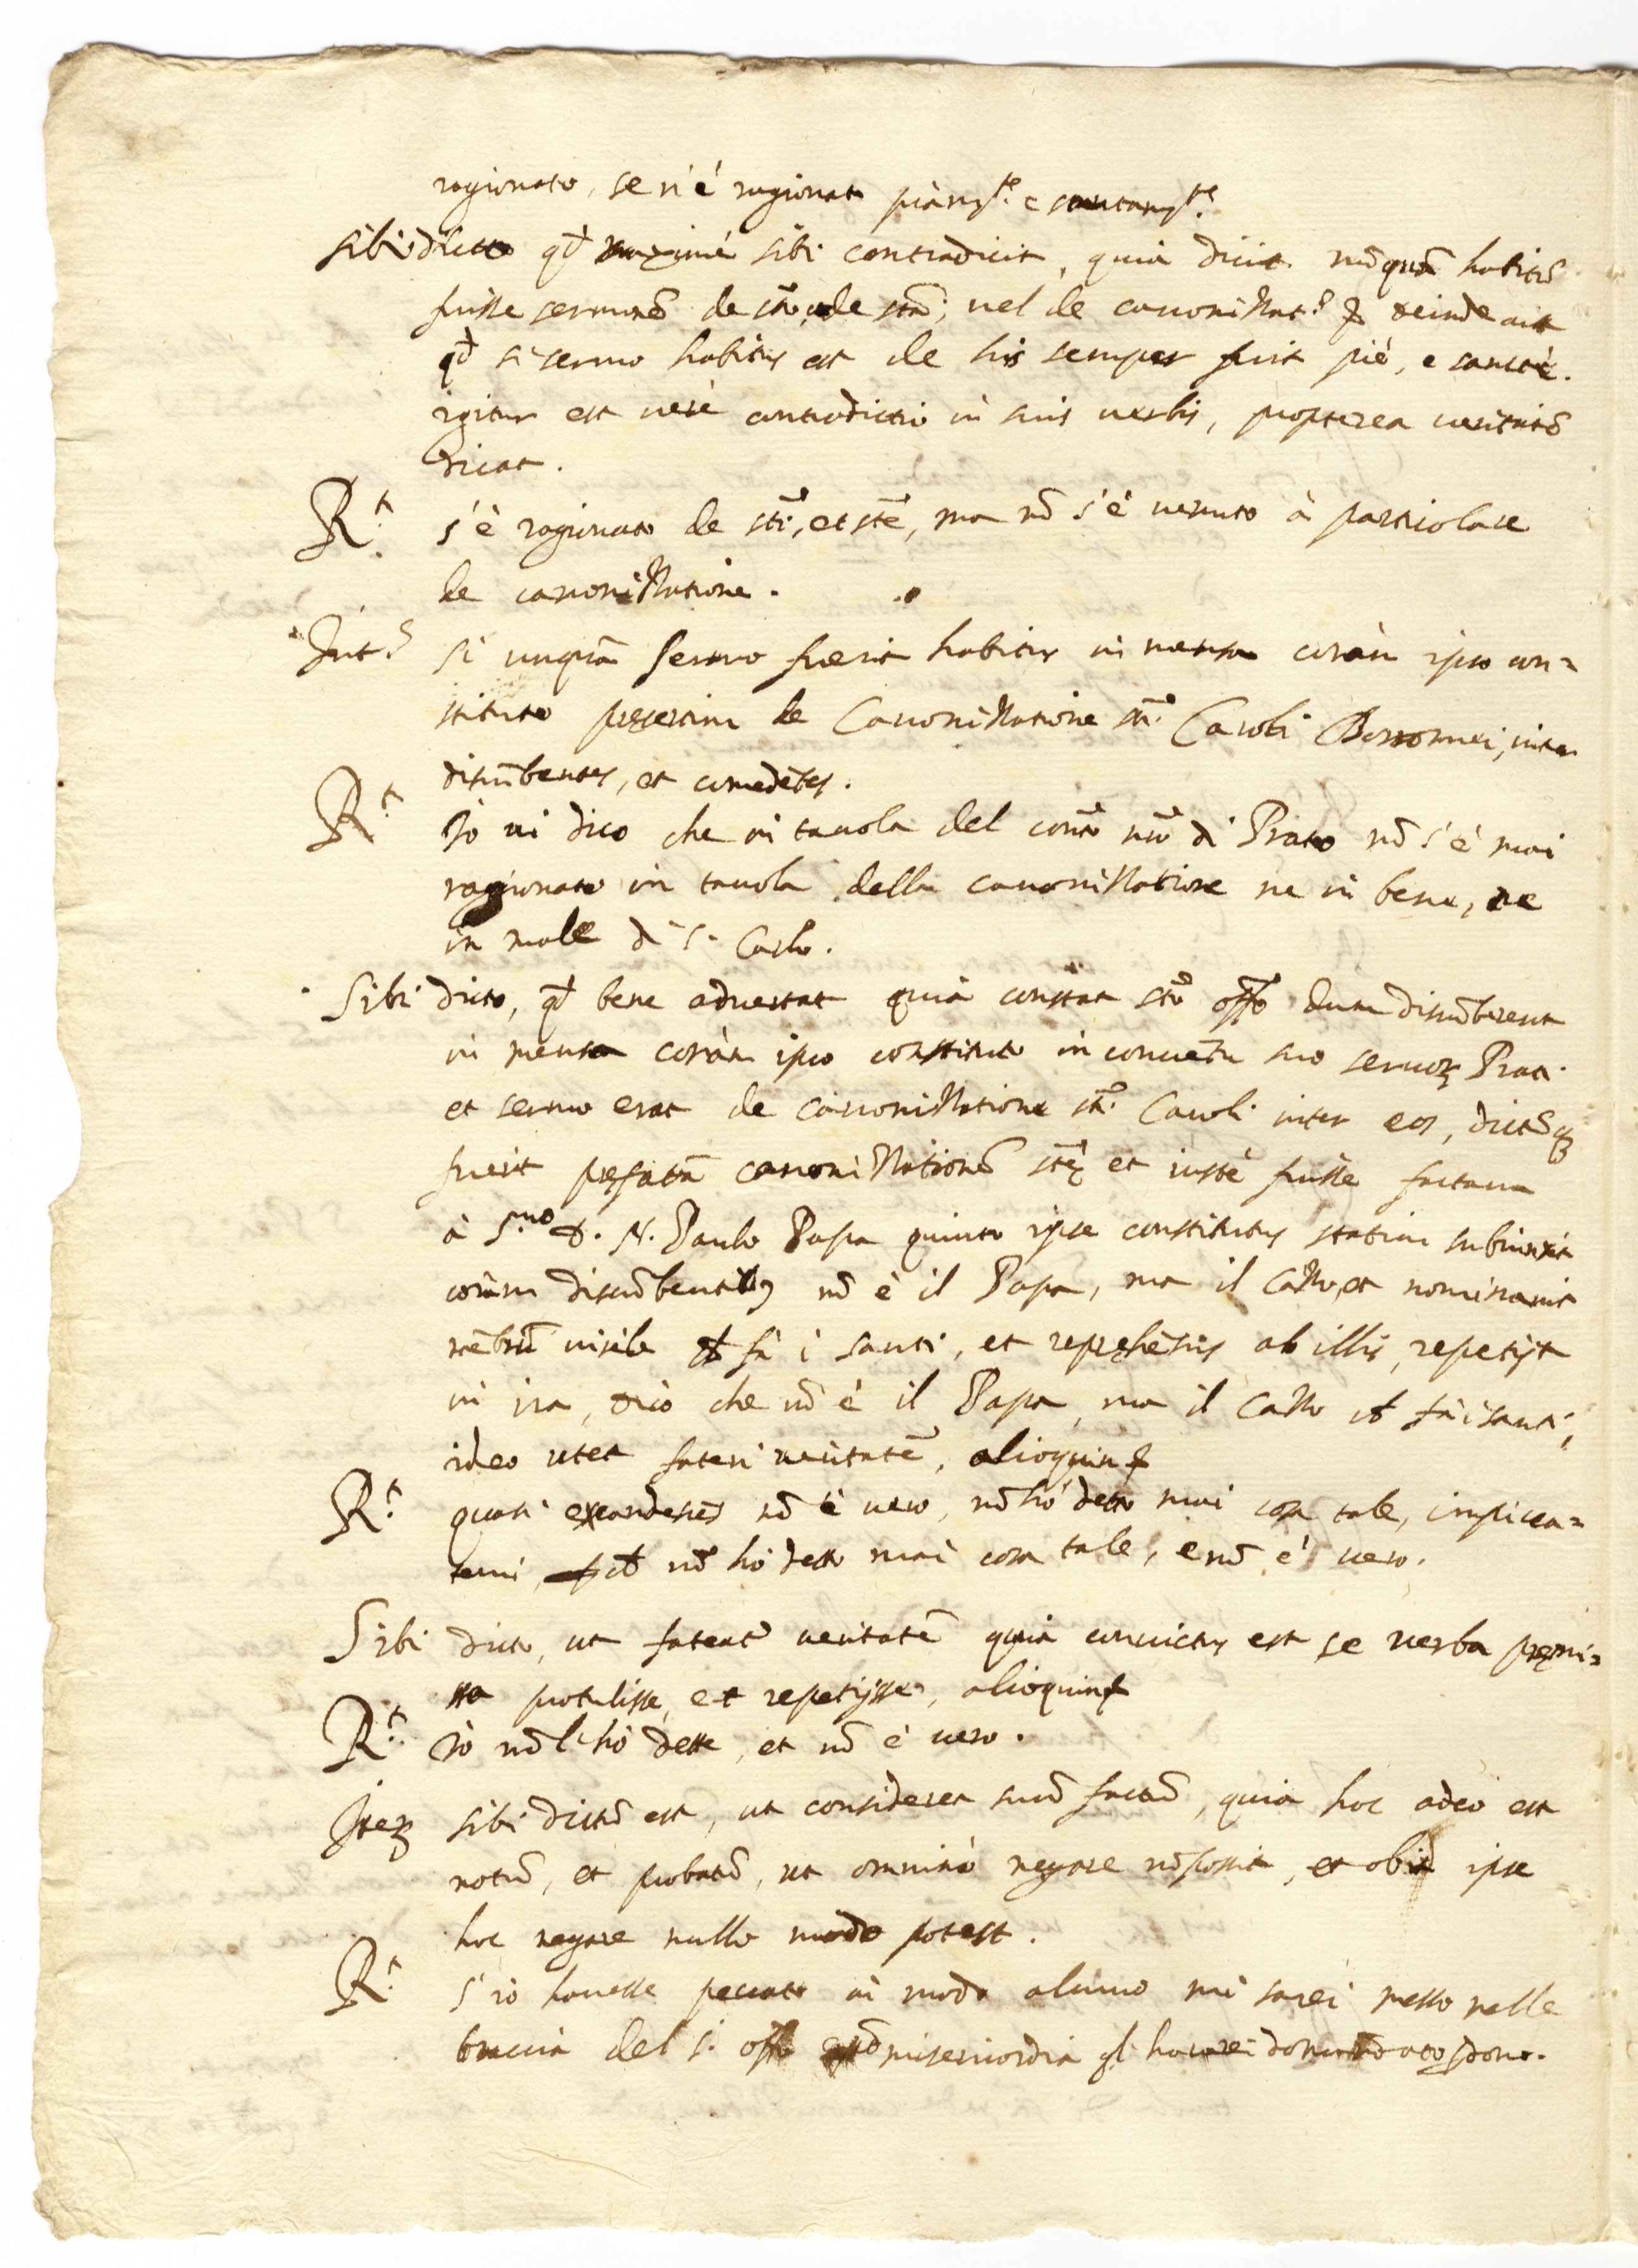 ragionato, se n'è ragionato piam.te e santam.te
Sibi dicto qd maximè sibi contradicit, quia dicit nūquā habitū
fuisse sermonē de sto, vel de sta; vel de canonizat.e et deinde ait
qd si sermo habitus est de his semper fuit piè, e sanctè.
igitur est verè contradictio in suis verbis, propterea veritatē
dicat.
R.t s'è ragionato de sti, et ste, ma nō s'è venuto à particolare
de canonizatione.
Int.s si unquā sermo fuerit habitus in mensa coràm ipso con=
stituto presertim de Canonizatione sti Caroli Borromei, inter
discūbentes, et comedētes.
R.t Io vi dico che in tavola del convto nro di Prato nō s'è mai
ragionato in tavola della canonizatione ne in bene, ne
in male di S. Carlo.
Sibi dicto, qd bene advertat quia constat sto offo dum discūberent
in mensa coràm ipso constituto in conventu suo servor Prati
et sermo erat de canonizatione sti Caroli inter eos, dictūq
fuerit prefatā canonizationē stę et iustè fuisse factam
à S.mo D. N. Paulo Papa quinto ipse constitutus statim subiunxit
coràm discūbentibus nō è il Papa, ma il Cazzo, et nominavit
mēbrū virile ch fà i santi, et reprehēsus ab illis, repetijt
in ira, dico che nō è il Papa, ma il Cazzo ch fà i santi,
ideo vtet fateri veritatē, alioquin
R.t quasi excandescēs nō è vero, nō hò detto mai cosa tale, impicca=
temi, ch nō hò detto mai cosa tale, e nō è vero.
Sibi dicto, ut fateat veritatē quia convictus est se verba premi=
ssa protulisse, et repetijsse, alioquin
R.t Io nō l'hò dette, et nō è vero.
Item sibi dictū est, ut consideret suū factū, quia hoc adeò est
notū, et probatū, ut omninò negare nō possit, et obid ipse
hoc negare nullo modo potest.
R.t S'io havesse peccato in modo alcuno mi sarei messo nelle
braccia del s. offo misericordia gl' haverei domādato pdono.